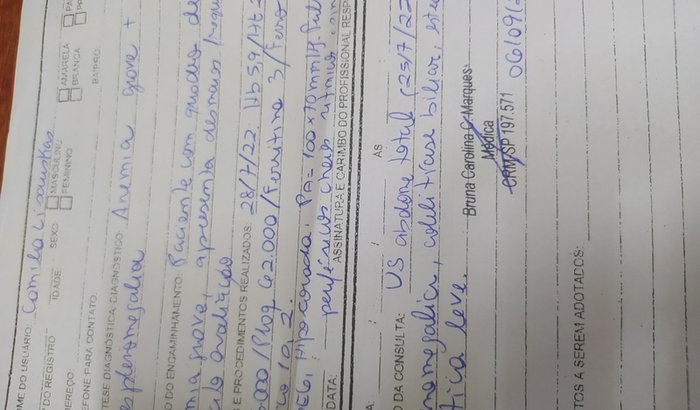 OME DO USUÁRIO: Camila Lisauskas
DO REGISTRO IDADE: SEXO MASCULINO AMARELA PA
FEMININO BRANCA
EREÇO: BAIRRO:
EFONE PARA CONTATO:
TESE DIAGNÓSTICA/DIAGNÓSTICO: Anemia grave +
esplenomegalia
O DO ENCAMINHAMENTO: Paciente com quadro de
mia grave, apresenta desmaios
avaliação
E PROCEDIMENTOS REALIZADOS: 28/7/22 Hb 5,9/Ht
000/Plaq 62.000/Ferritina 3/Ferro
10,2.
Hipocorada, PA= 100x70mmHg.
periféricos cheios rítmicos
DATA: ASSINATURA E CARIMBO DO PROFISSIONAL RESP
A: ÀS
O DA CONSULTA: US abdome total (25/7/22
nomegalia, colelitíase biliar,
tica leve.
Bruna Carolina C. Marques
Médica
CRM/SP 197.571
06/09/2
TOS A SEREM ADOTADOS: